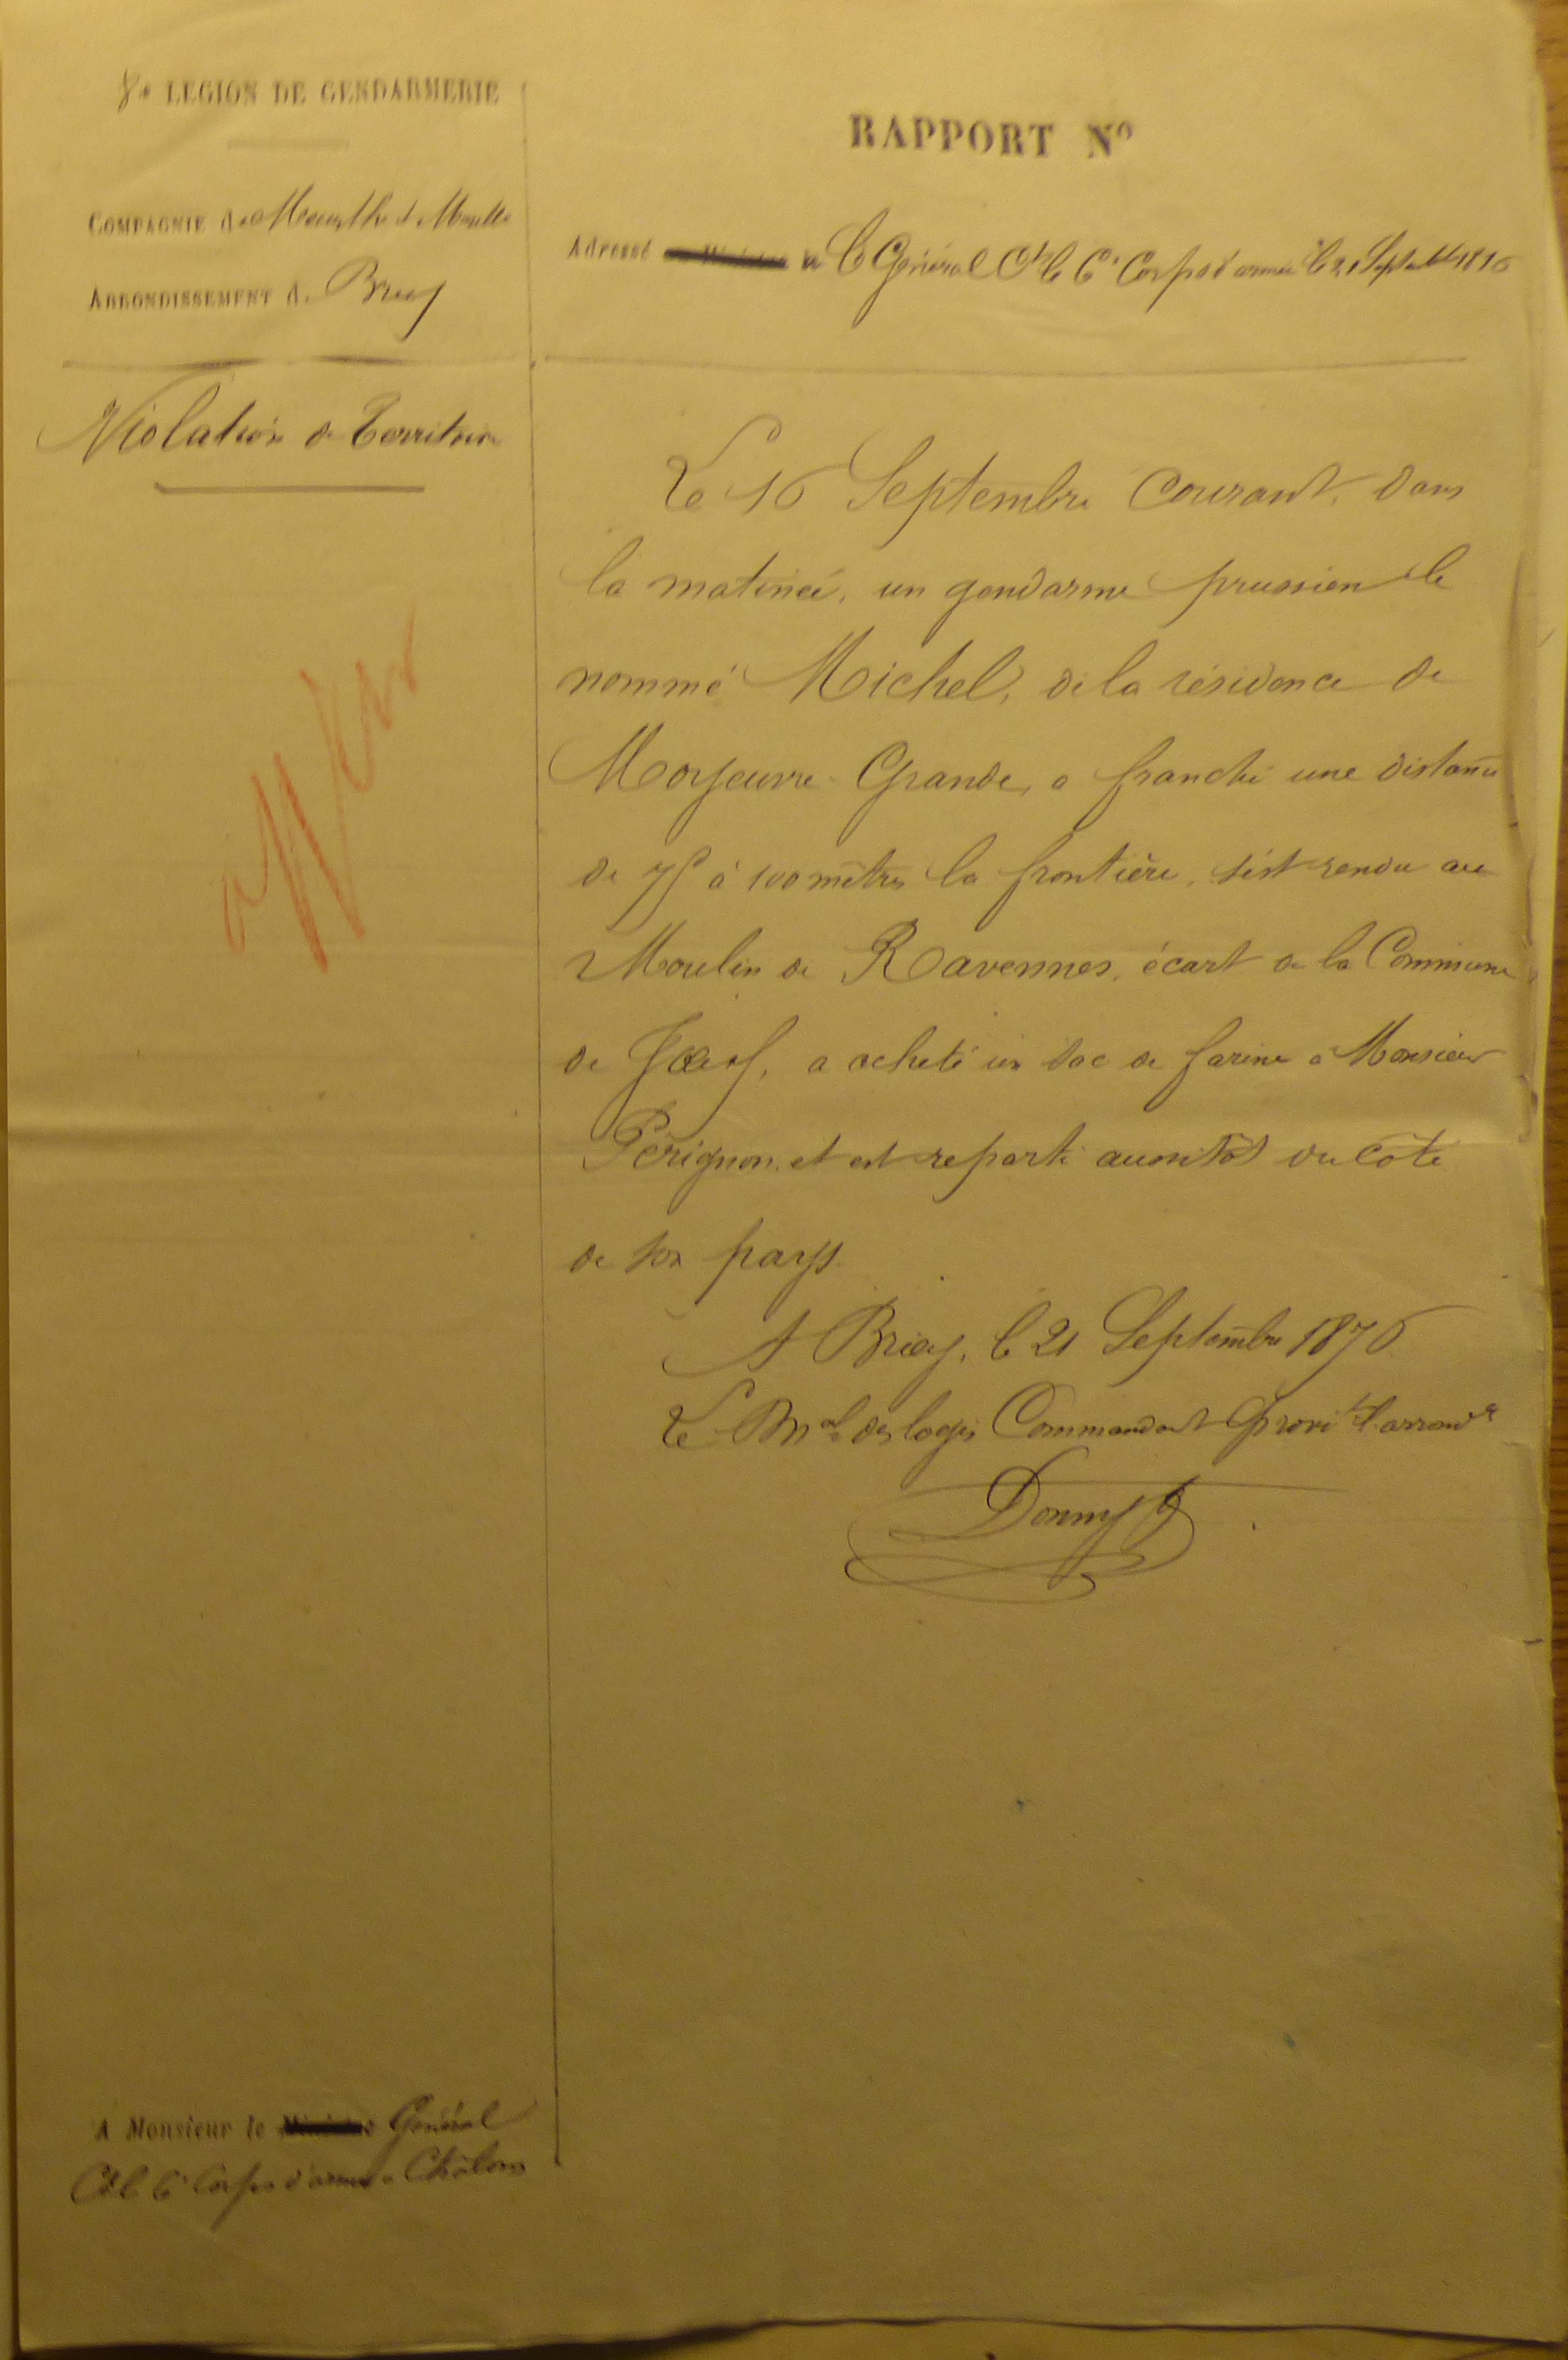 8e LEGION DE GENDARMERIE
COMPAGNIE de Meurthe et Moselle
ARRONDISSEMENT de Briey
Violation de Territoire
RAPPORT Nº
Adressé à le Général Ct le 6e Corps d'armée le 21 Septembre 1876
Le 16 Septembre courant, dans
la matinée, un gendarme prussien le
nommé Michel, de la résidence de
Moyeuvre-Grande, a franchi une distance
de 75 à 100 mètres la frontière, s'est rendu au
Moulin de Ravennes, écart de la Commune
de Joeuf, a acheté un sac de farine a Monsieur
Pérignon, et est reparti aussitôt du côté
de son pays.
A Briey, le 21 Septembre 1876
Le Mal des logis Commandant provt l'arrondt
Donny
A Monsieur le Général
Ct le 6e Corps d'armée a Châlons